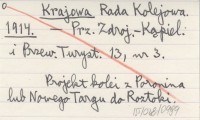 Krajowa Rada Kolejowa.
1914. — Prz. Zdroj.-Kąpiel.
i Przew. Turyst. 13, nr 3.
Projekt kolei z Poronina
lub Nowego Targu do Roztoki.